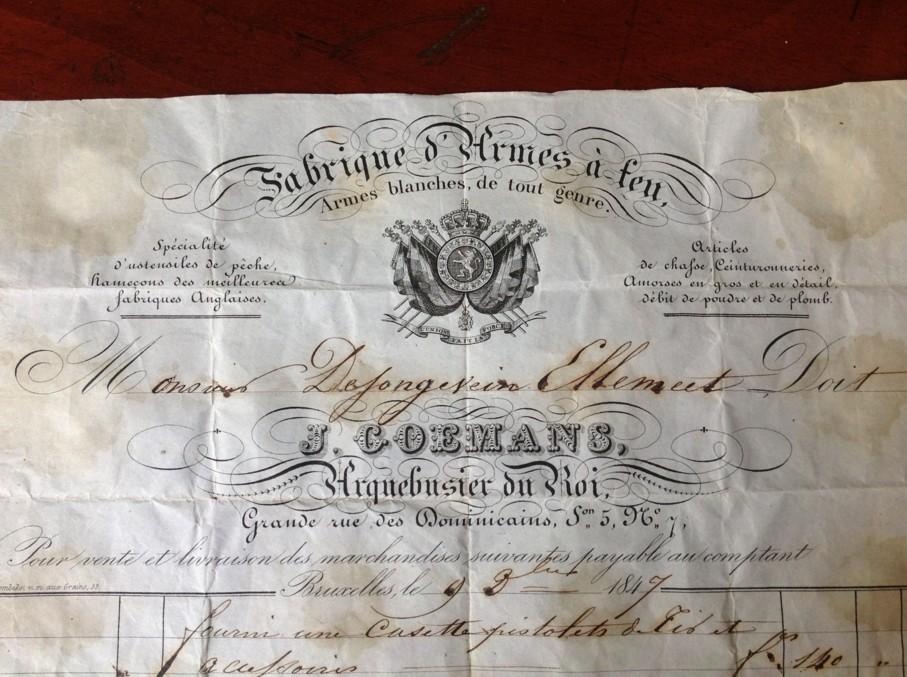 Fabrique d'Armes à feu,
Armes blanches, de tout genre.
Spécialité
d'ustensiles de pêche,
hameçons des meilleures
fabriques Anglaises.
Articles
de chasse, Ceinturonneries,
Amorses en gros et en détail,
débit de poudre et de plomb.
L'UNION FAIT LA FORCE
Monsieur Dejonge Ellemeet Doit
J. COEMANS,
Arquebusier du Roi,
Grande rue des Dominicains, Son 5, No 7,
Pour vente et livraison des marchandises suivantes payable au comptant
Bruxelles, le 9 1847
fourni une casette pistolets de Tir et
acessoiris fr. 140 "